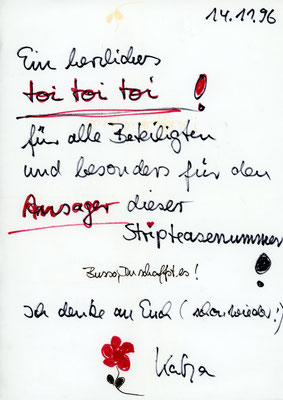 14.11.96
Ein herzliches
toi toi toi!
für alle Beteiligten
und besonders für den
Ansager dieser
Stripteasenummer!
Busso, Du schaffst es!
Ich denke an Euch (schon wieder!)
Katja